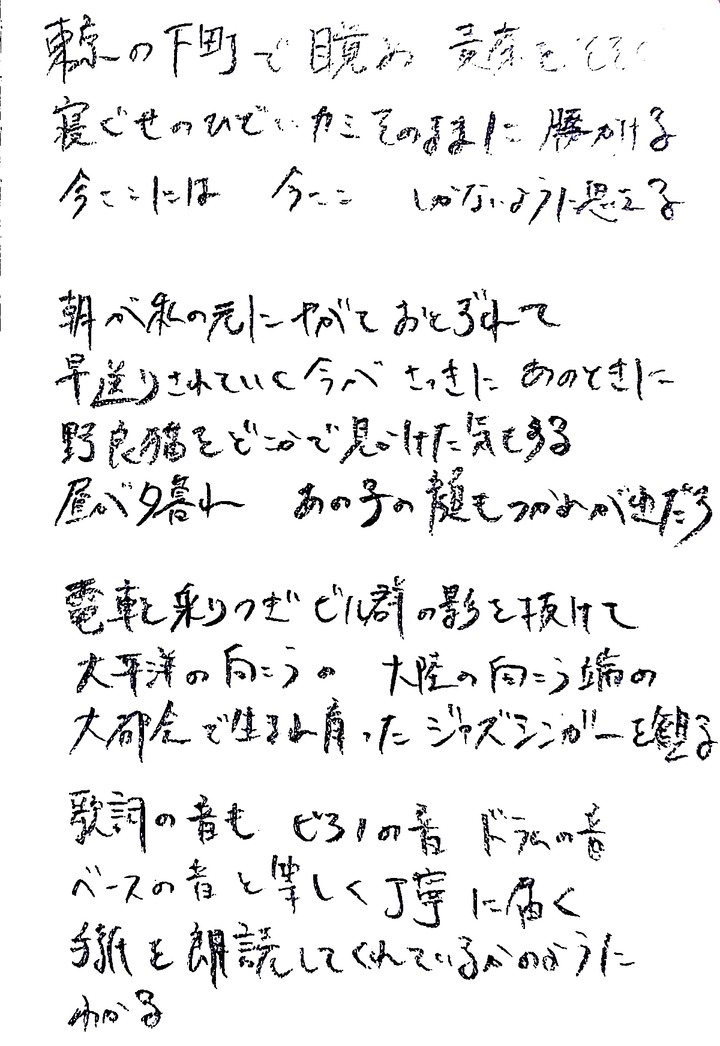 東京の下町で目覚め
寝ぐせのひどいカミそのままに 腰かける
今ここには 今ここ しかないように思える
朝が私の元にやがて おとずれて
早送りされていく今が さっきに あのときに
野良猫をどこかで見かけた気もする
昼が夕暮れ あの子の顔も
電車を乗りつぎ ビル群の影を抜けて
太平洋の向こうの 大陸の向こう端の
大都会で生まれ育った ジャズシンガーを観る
歌詞の音も ピアノの音 ドラムの音
ベースの音と等しく丁寧に届く
手紙を朗読してくれているかのように
わかる